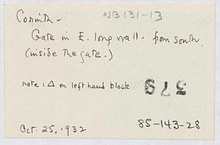 Corinth - NB131-13
Gate in E. long wall. from south
(inside the gate.)
note: Δ on left hand block
379
Oct. 25, 1932
85-143-28